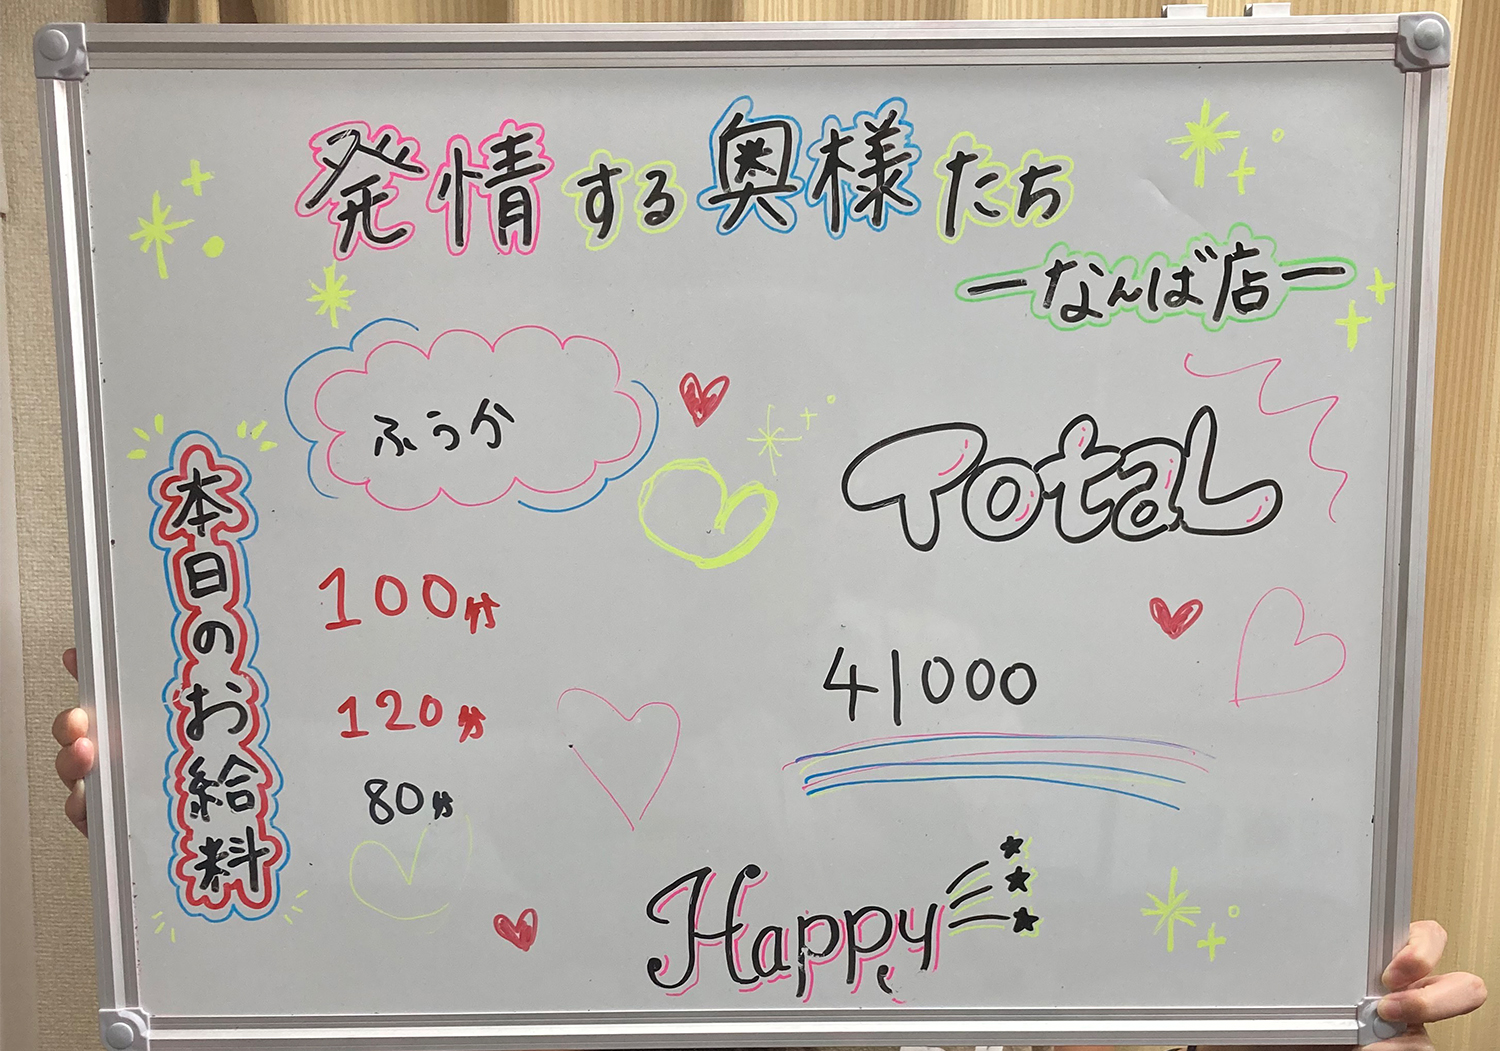 発情する奥様たち
ーなんば店ー
本日のお給料
ふうか
100分
120分
80分
Total
41000
Happy